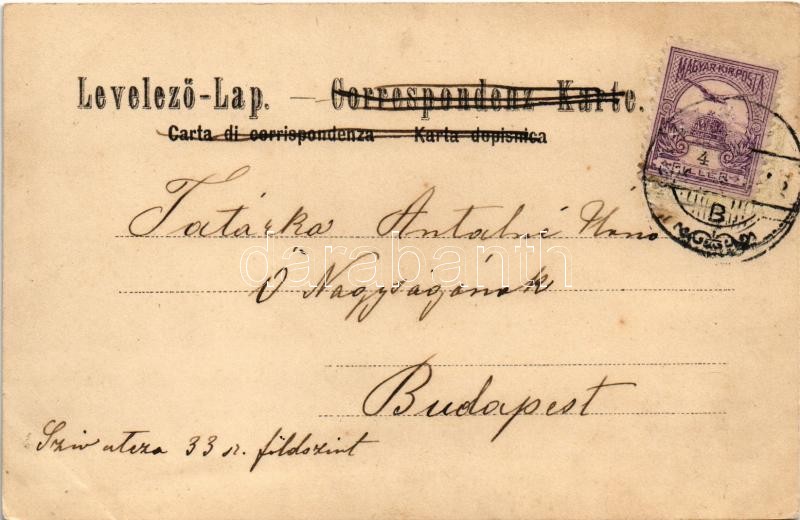 Levelező-Lap. — Correspondenz-Karte.
Carta di corrispondenza — Karta dopisnica
MAGYAR·KIR·POSTA
4
FILLÉR
B
Tatárka Antalné
Ő Nagyságának
Budapest
Sziv utcza 33 sz. földszint
darabanth